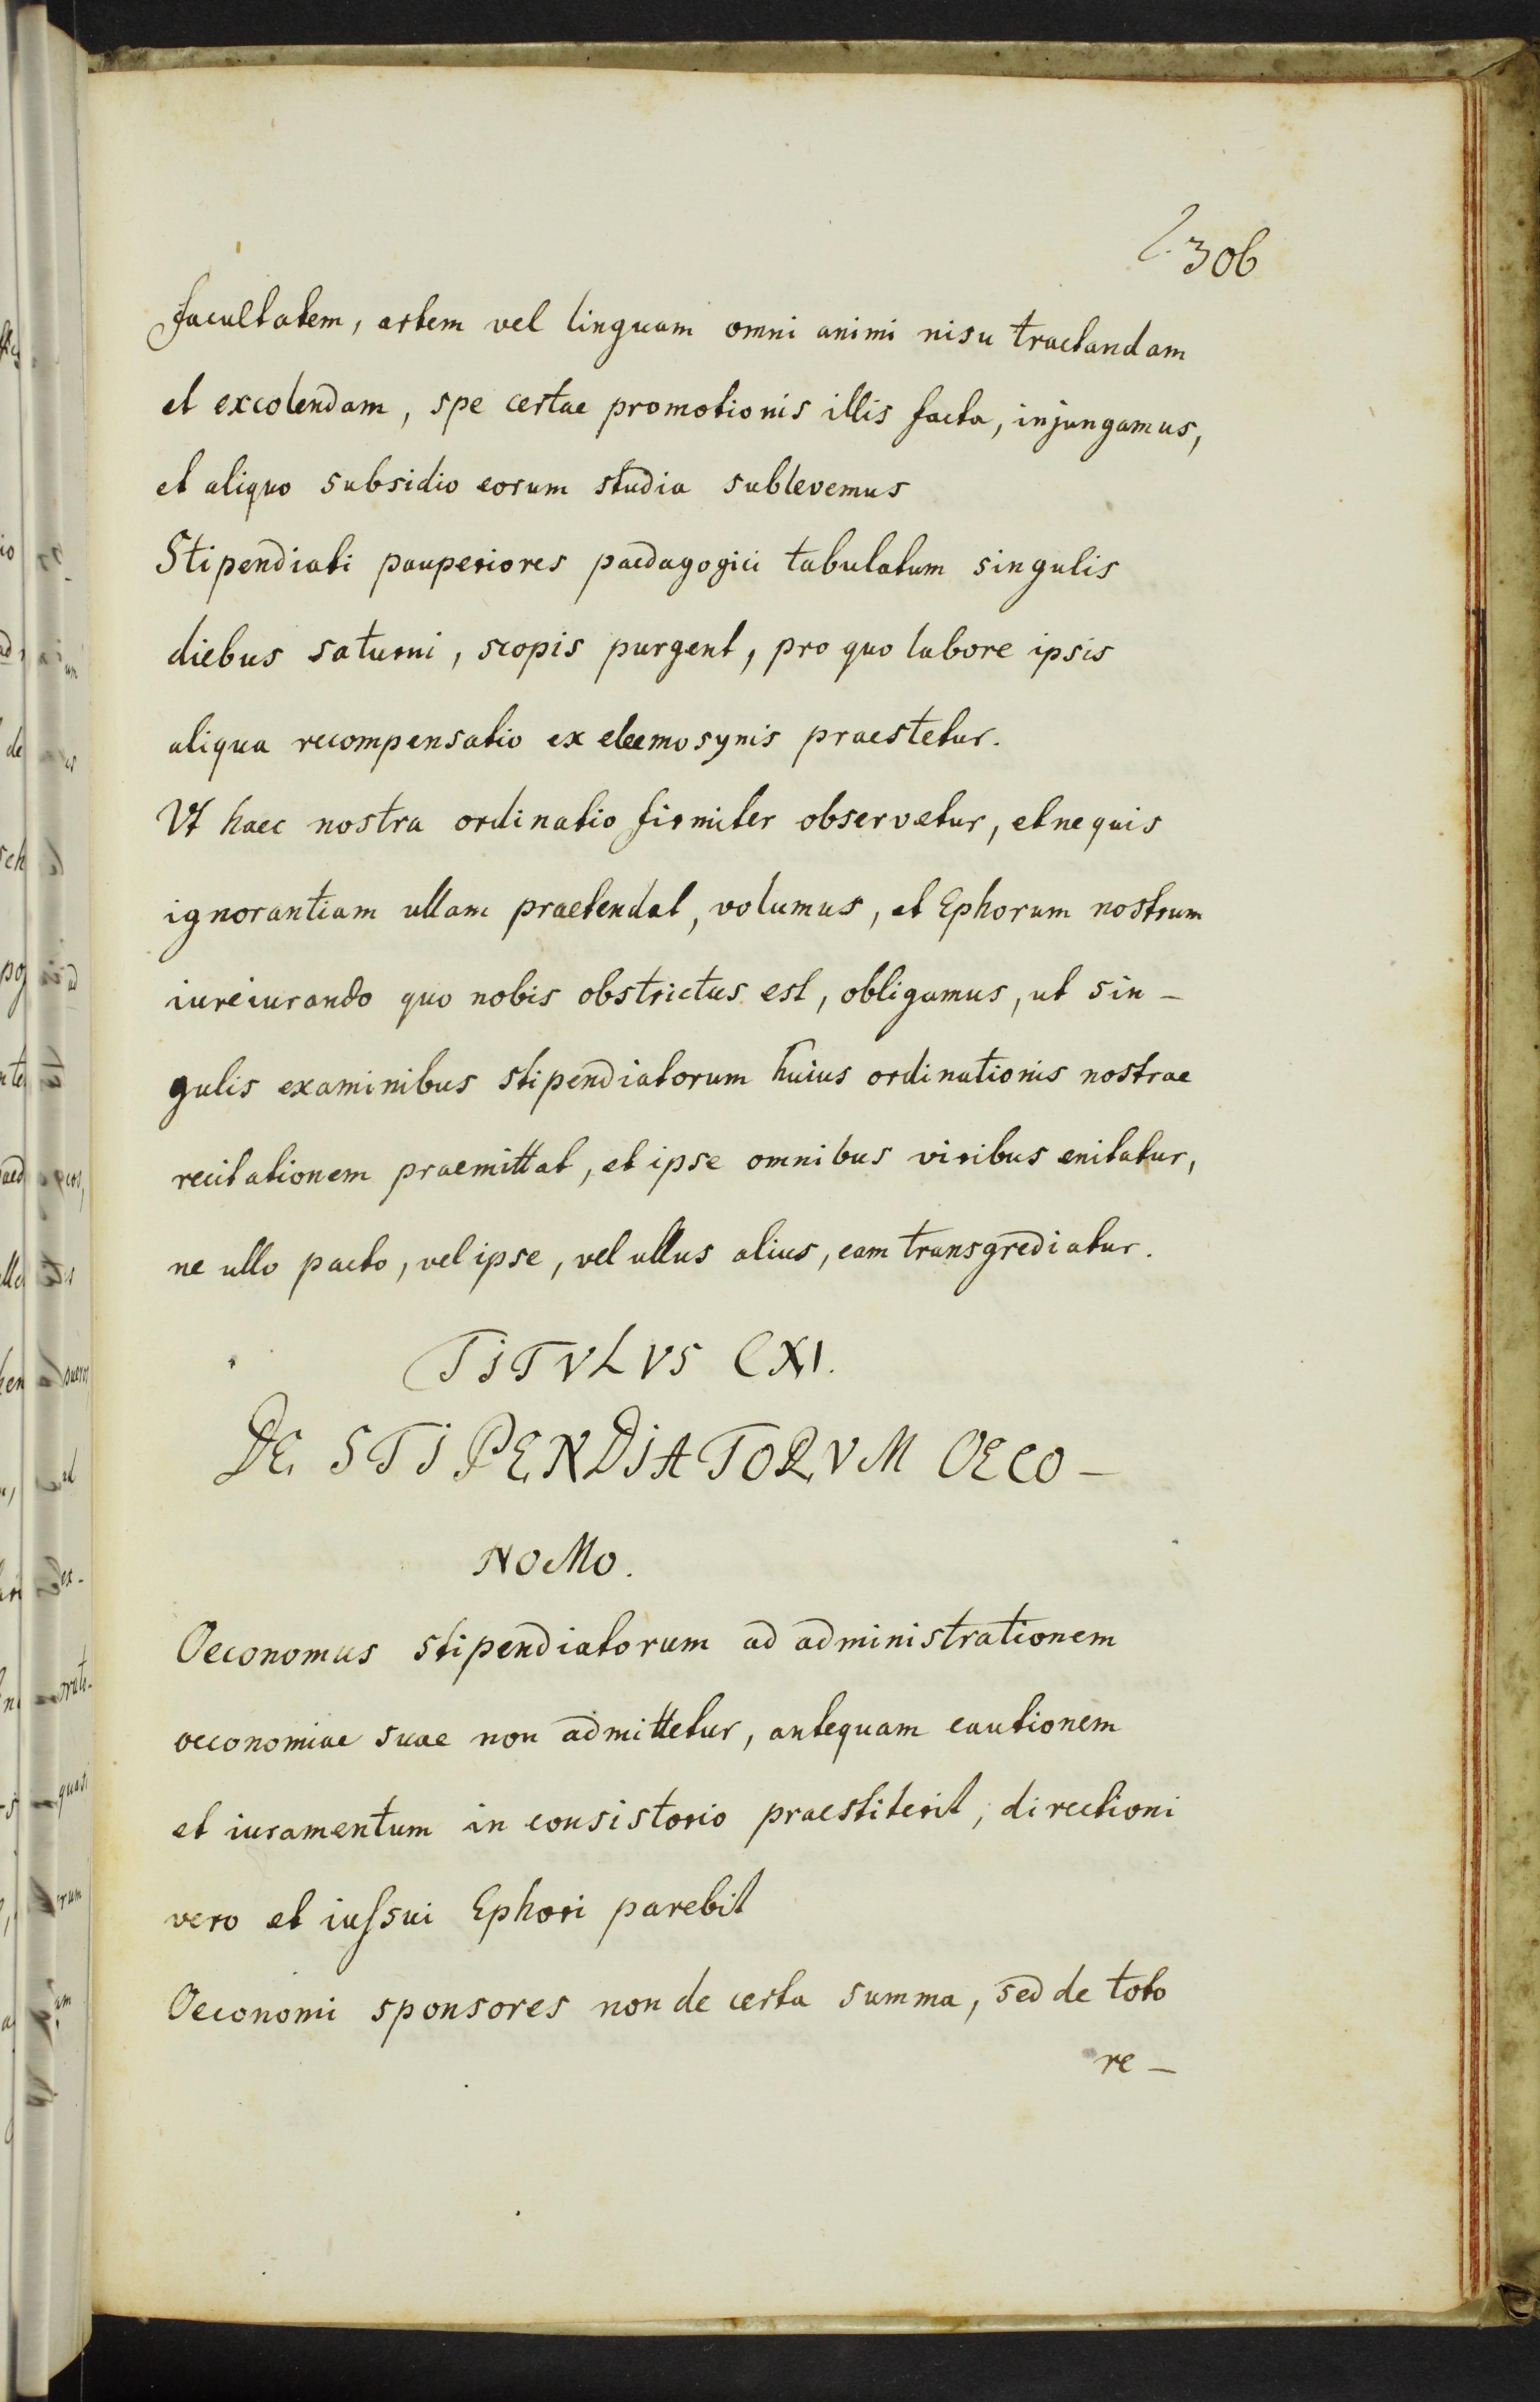 306
facultatem, artem vel linguam omni animi nisu tractandam
et excolendam, spe certae promotionis illis facta, injungamus,
et aliquo subsidio eorum studia sublevemus
Stipendiati pauperiores paedagogici tabulatum singulis
diebus saturni, scopis purgent, pro quo labore ipsis
aliqua recompensatio ex eleemosynis praestetur.
Vt haec nostra ordinatio firmiter observetur, et ne quis
ignorantiam ullam praetendat, volumus, et Ephorum nostrum
iureiurando quo nobis obstrictus est, obligamus, ut sin-
gulis examinibus stipendiatorum huius ordinationis nostrae
recitationem praemittat, et ipse omnibus viribus enitatur,
ne ullo pacto, vel ipse, vel ullus alius, eam transgrediatur.
TITVLVS CXI.
DE STIPENDIATORVM OECO-
NOMO.
Oeconomus stipendiatorum ad administrationem
oeconomiae suae non admittetur, antequam cautionem
et iuramentum in consistorio praestiterit, directioni
vero et iussui Ephori parebit
Oeconomi sponsores non de certa summa, sed de toto
re-